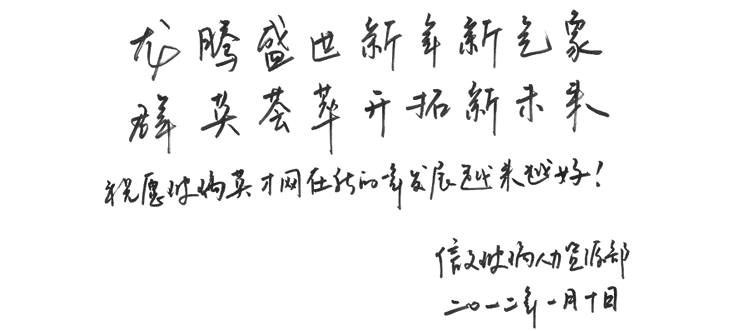 龙腾盛世新年新气象
群英荟萃开拓新未来
祝愿玻璃英才网在新的年发展越来越好！
信义玻璃人力资源部
二〇一二年一月十日